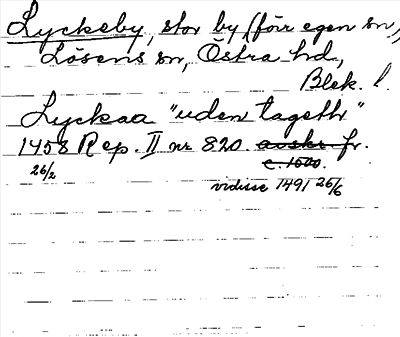 Lyckeby, stor by (förr egen sn,
Lösens sn, Östra hd,
Blek. l.
Lyckaa "uden tagethr"
1458 Rep. II nr 820. avskr. fr.
26/2 c. 1600.
vidisse 1491 26/6